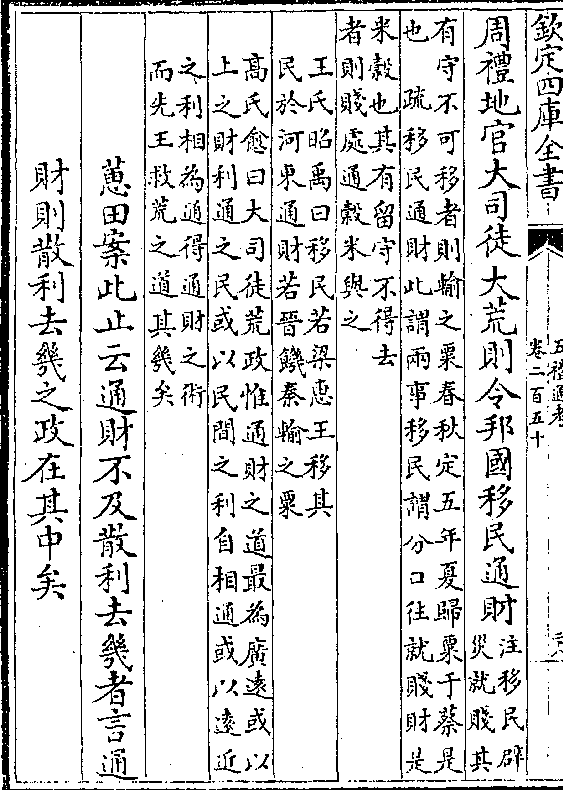 欽定四庫全書
五禮通考
卷二百五十
周禮地官大司徒大荒則令邦國移民通財注移民辟
災就賤其
有守不可移者則輸之粟春秋定五年夏歸粟于蔡是
也 疏移民通財此謂兩事移民謂分口往就賤財是
米穀也其有留守不得去
者則賤處通穀米與之
王氏昭禹曰移民若梁惠王移其
民於河東通財若晉饑秦輸之粟
高氏愈曰大司徒荒政惟通財之道最為廣遠或以
上之財利通之民或以民間之利自相通或以遠近
之利相為通得通財之術
而先王救荒之道其幾矣
蕙田案此止云通財不及散利去幾者言通
財則散利去幾之政在其中矣